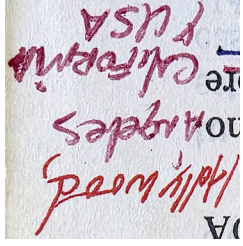 Hollywood,
Angeles
CALIFORNIA
Y USA